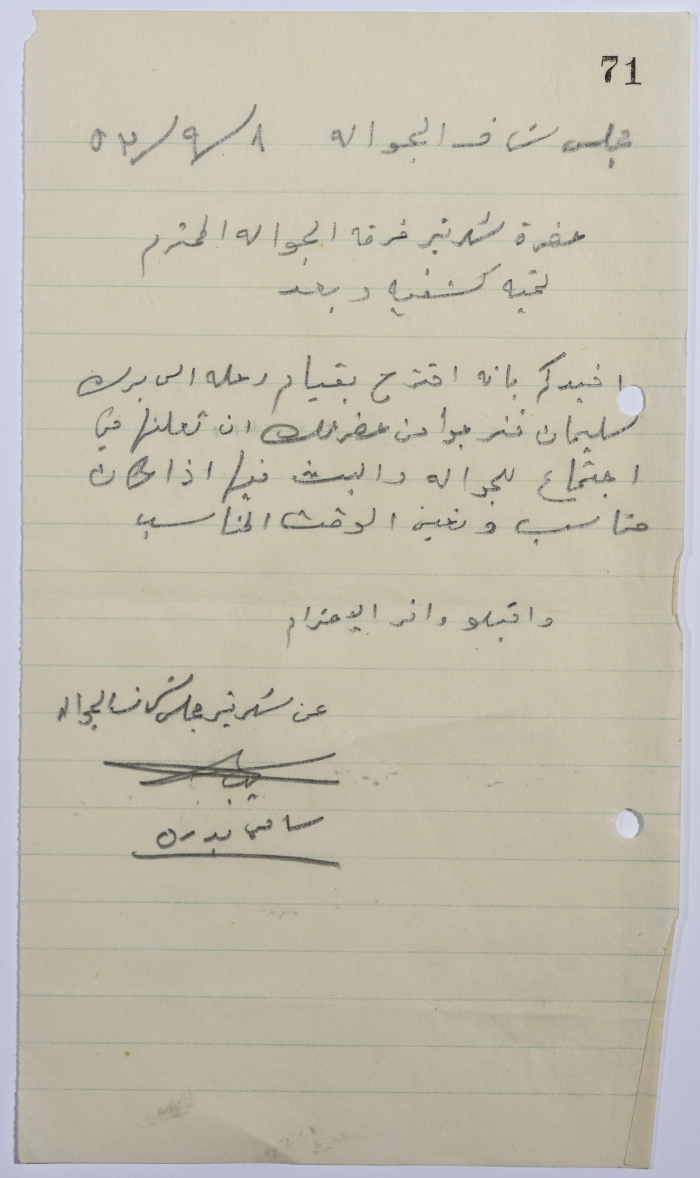 71
مجلس شرف الجواله ٨/٩/٥٣
حضرة سكرتير فرقة الجواله المحترم
تحيه كشفيه وبعد
اخبركم بانه اقترح بقيام رحله الى برك
سليمان فنرجوا من حضرتك ان تعلنها في
اجتماع للجواله والبث فيها اذا كان
مناسب وتعين الوقت المناسب
واقبلو وافر الاحترام
عن سكرتير مجلس شرف الجواله
سامي